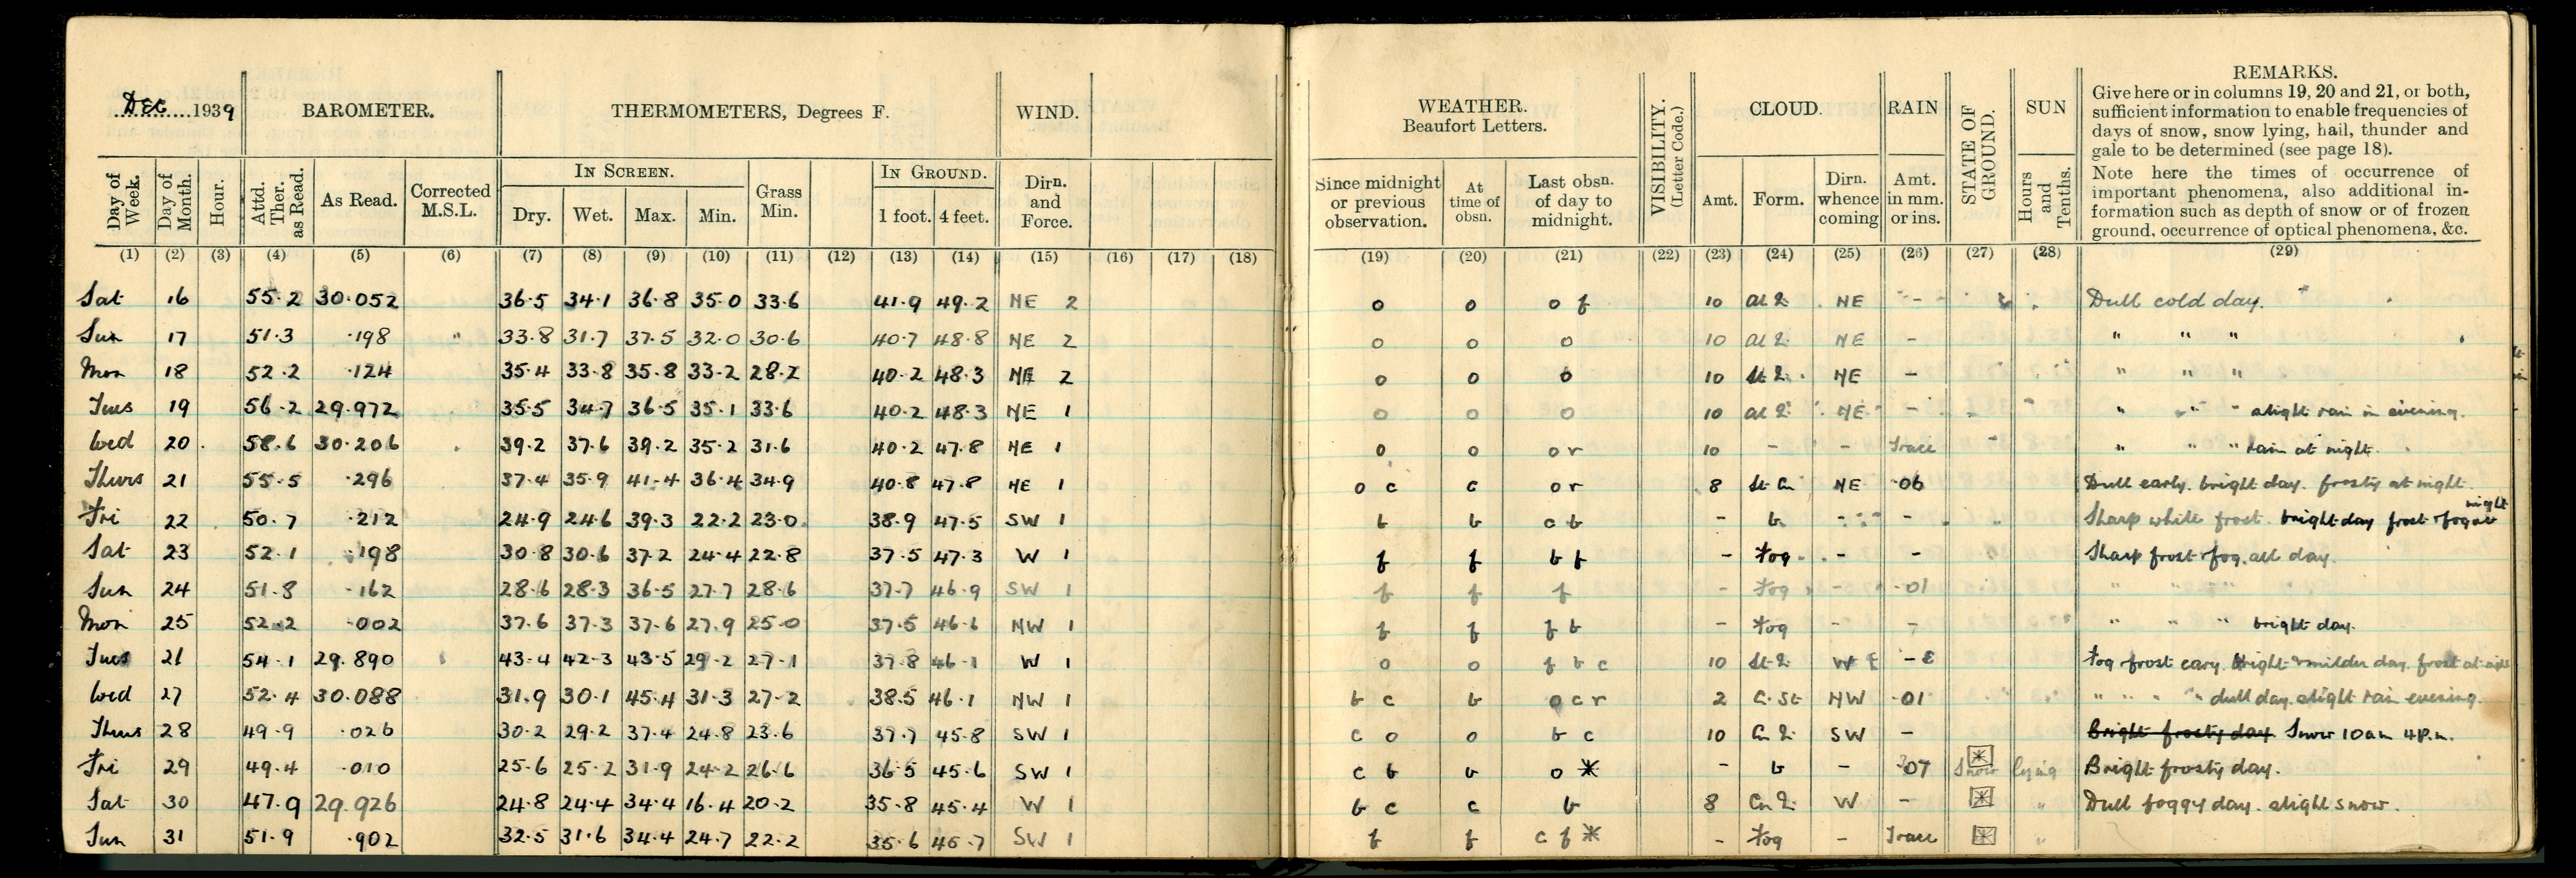 Dec 1939 BAROMETER. THERMOMETERS, Degrees F. WIND. WEATHER. Beaufort Letters. VISIBILITY. (Letter Code.) CLOUD. RAIN STATE OF GROUND. SUN REMARKS.
Give here or in columns 19, 20 and 21, or both,
sufficient information to enable frequencies of
days of snow, snow lying, hail, thunder and
gale to be determined (see page 18).
Note here the times of occurrence of
important phenomena, also additional in-
formation such as depth of snow or of frozen
ground, occurrence of optical phenomena, &c.
Day of Week. Day of Month. Hour. Attd. Ther. as Read. As Read. Corrected M.S.L. IN SCREEN. Dry. Wet. Max. Min. Grass Min. IN GROUND. 1 foot. 4 feet. Dirn. and Force. Since midnight or previous observation. At time of obsn. Last obsn. of day to midnight. Amt. Form. Dirn. whence coming Amt. in mm. or ins. Hours and Tenths.
(1) (2) (3) (4) (5) (6) (7) (8) (9) (10) (11) (12) (13) (14) (15) (16) (17) (18) (19) (20) (21) (22) (23) (24) (25) (26) (27) (28) (29)
Sat 16 55.2 30.052 36.5 34.1 36.8 35.0 33.6 41.9 49.2 NE 2 o o o f 10 NE - Dull cold day.
Sun 17 51.3 .198 33.8 31.7 37.5 32.0 30.6 40.7 48.8 NE 2 o o o 10 NE - " " "
Mon 18 52.2 .124 35.4 33.8 35.8 33.2 28.2 40.2 48.3 NE 2 o o o 10 NE - " " "
Tues 19 56.2 29.972 35.5 34.7 36.5 35.1 33.6 40.2 48.3 NE 1 o o o 10 NE - " " " slight rain in evening.
Wed 20. 58.6 30.206 39.2 37.6 39.2 35.2 31.6 40.2 47.8 NE 1 o o o r 10 - - Trace " " " rain at night.
Thurs 21 55.5 .296 37.4 35.9 41.4 36.4 34.9 40.8 47.8 NE 1 o c c o r 8 St Cu NE .06 Dull early. bright day. frosty at night.
Fri 22 50.7 .212 24.9 24.6 39.3 22.2 23.0 38.9 47.5 SW 1 b b c b - b - - Sharp white frost. bright day frost + fog at night
Sat 23 52.1 .198 30.8 30.6 37.2 24.4 22.8 37.5 47.3 W 1 f f b f - Fog - - Sharp frost + fog. all day.
Sun 24 51.8 .162 28.6 28.3 36.5 27.7 28.6 37.7 46.9 SW 1 f f f - Fog - .01 " " " "
Mon 25 52.2 .002 37.6 37.3 37.6 27.9 25.0 37.5 46.6 NW 1 f f f b - Fog - - " " " bright day.
Tues 26 54.1 29.890 43.4 42.3 43.5 29.2 27.1 37.8 46.1 W 1 o o f b c 10 W - Fog frost eary. bright & milder day. frost at night
Wed 27 52.4 30.088 31.9 30.1 45.4 31.3 27.2 38.5 46.1 NW 1 b c b o c r 2 C. St NW .01 " " " " dull day. slight rain evening.
Thurs 28 49.9 .026 30.2 29.2 37.4 24.8 23.6 37.7 45.8 SW 1 c o o b c 10 SW - Bright frosty day. Snow 10am 4p.m.
Fri 29 49.4 .010 25.6 25.2 31.9 24.2 26.6 36.5 45.6 SW 1 c b b o * - b - .07 Snow lying Bright frosty day.
Sat 30 47.9 29.926 24.8 24.4 34.4 16.4 20.2 35.8 45.4 W 1 b c c b 8 W - " Dull foggy day. slight snow.
Sun 31 51.9 .902 32.5 31.6 34.4 24.7 22.2 35.6 45.7 SW 1 f f c f * - Fog - Trace "